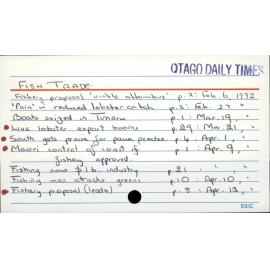 OTAGO DAILY TIMES
FISH TRADE.
Fishery proposal 'viable alternative' p.2: Feb. 6, 1992
'Pain' in reduced lobster catch p.3: Feb. 27 "
Boats seized in Timaru p.1: Mar. 19, "
Live lobster export booms p.29: Mar. 31, "
South gets praise for paua practice p.4: Apr. 1, "
Maori control of coast if p.1: Apr. 9, "
fishery approved.
Fishing now $1b. industry p.21 " "
Fishing man attacks greens p.10: Apr. 10, "
Fishery proposal (leads) p.8: Apr. 13, "
53/C